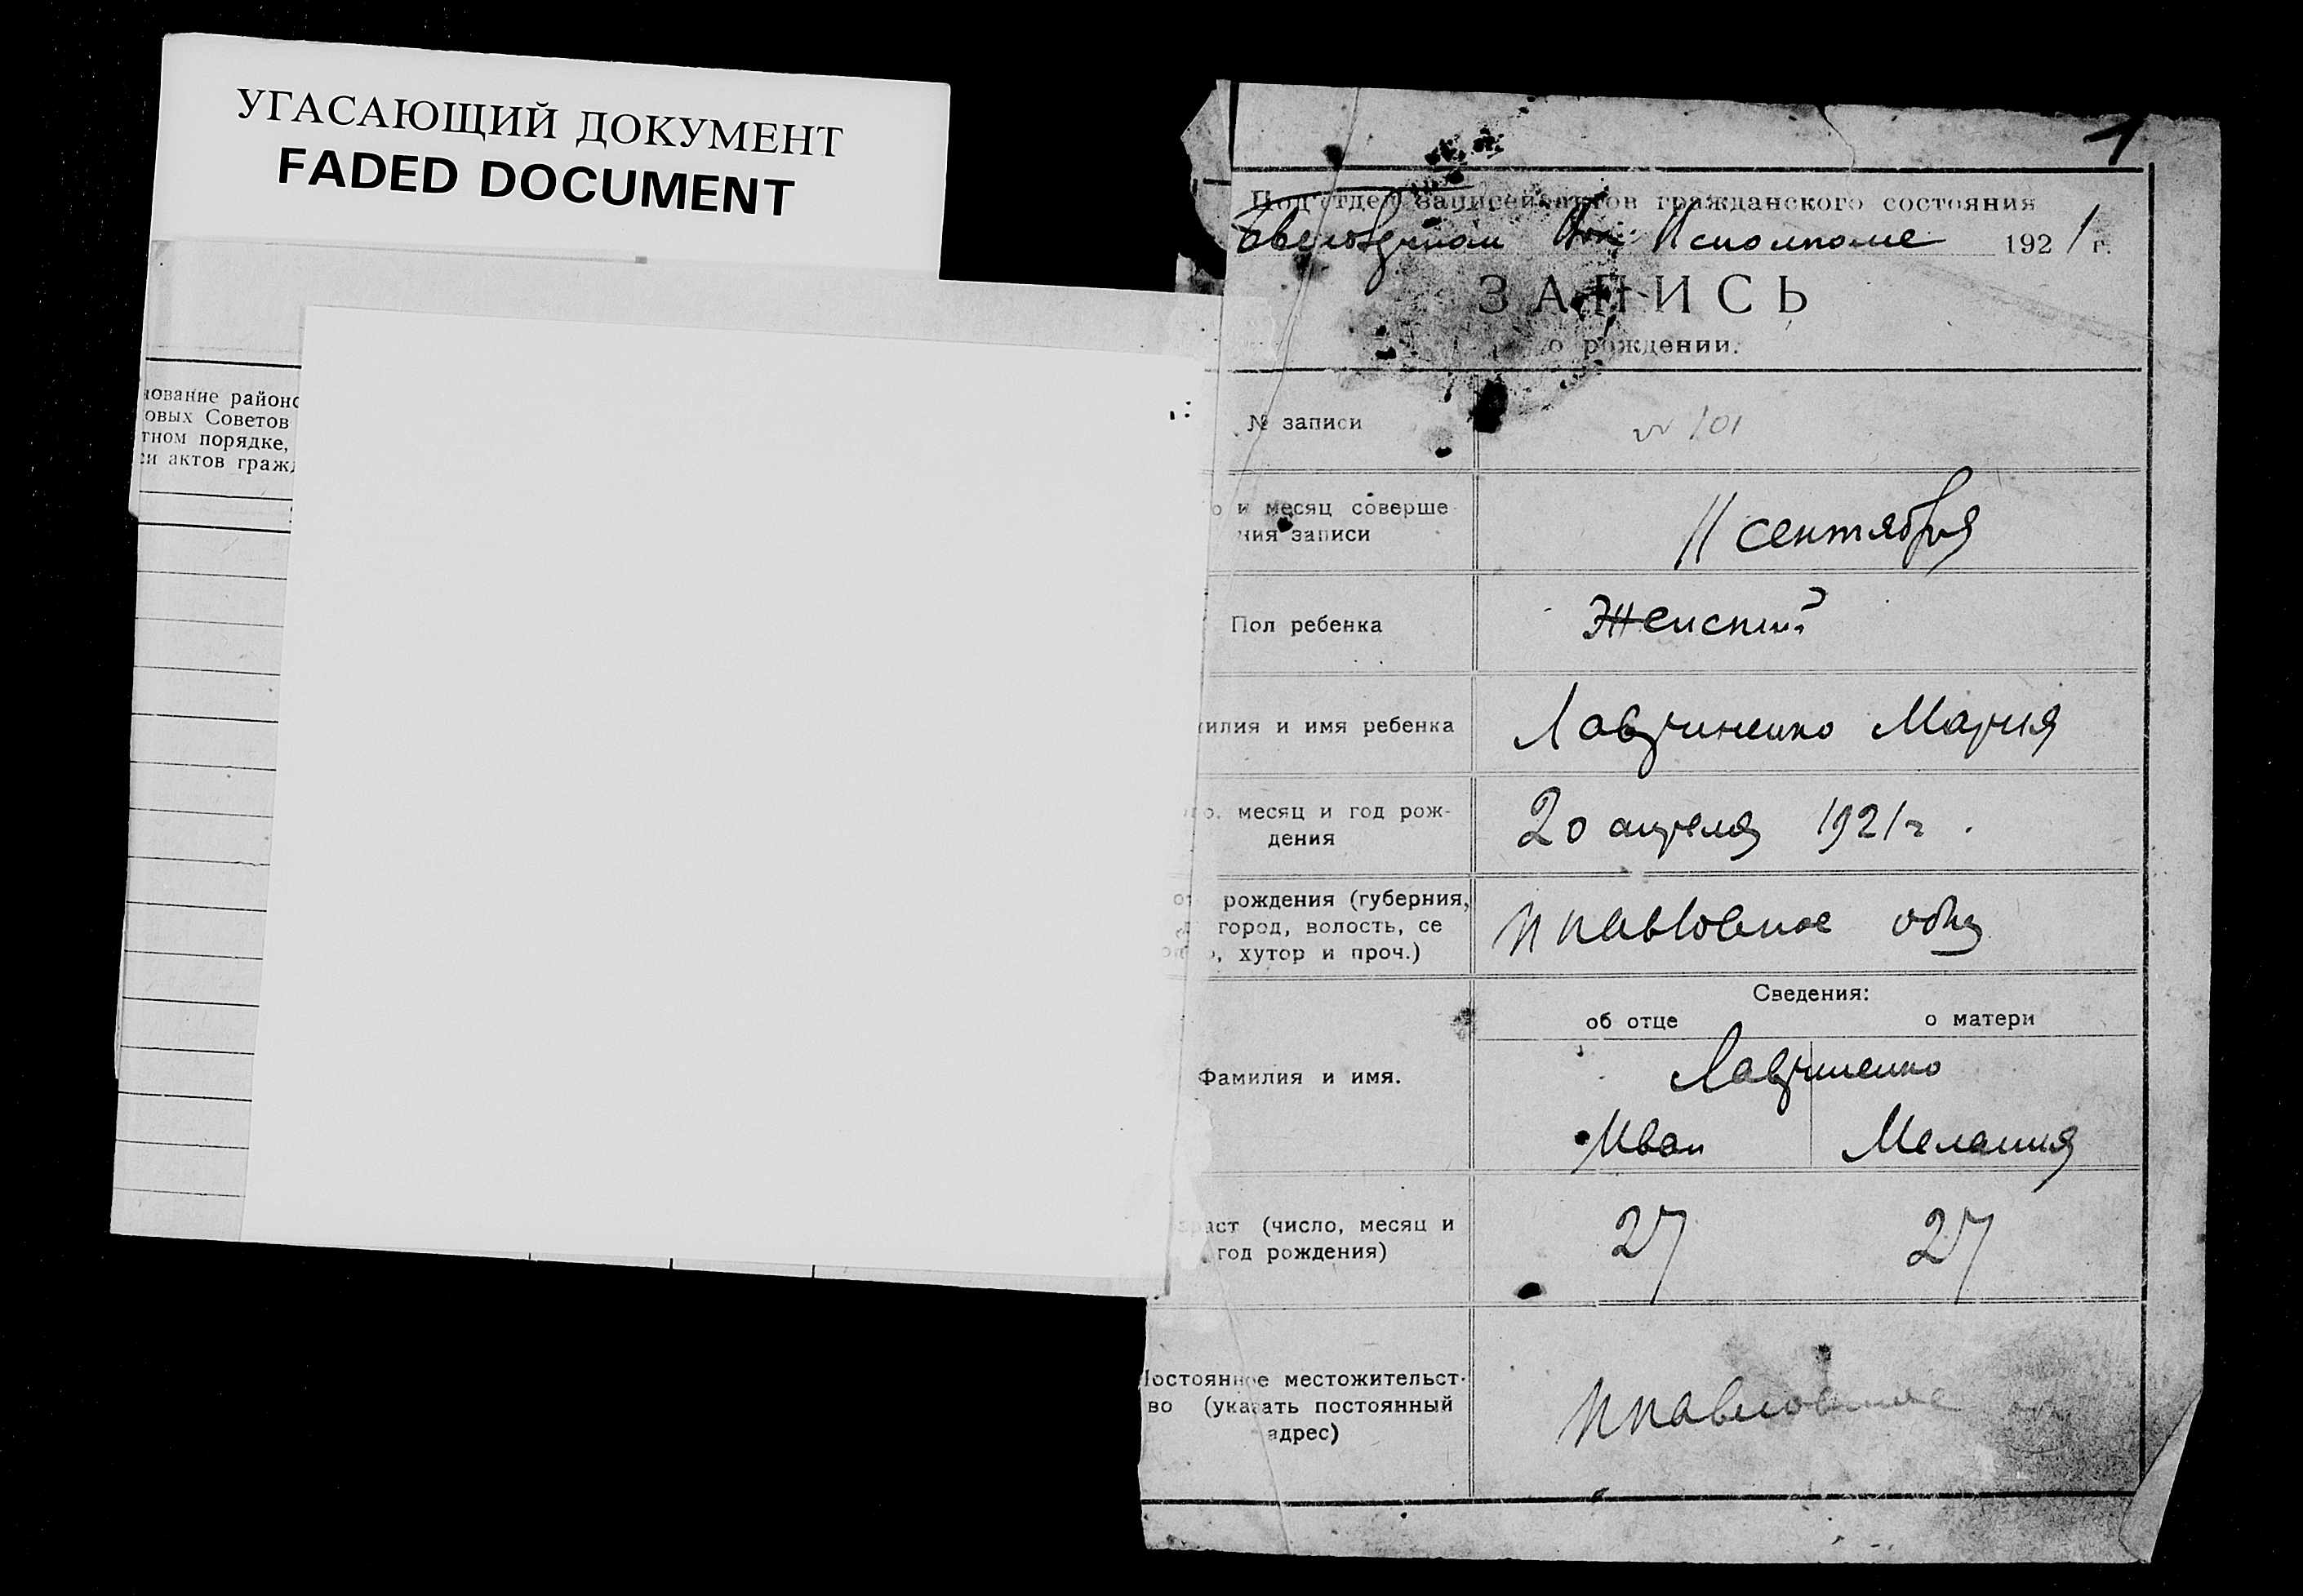 УГАСАЮЩИЙ ДОКУМЕНТ
FADED DOCUMENT
нование районо
овых Советов
тном порядке,
си актов гражд
1
Подотдел записей актов гражданского состояния
Исполкоме 1921 г.
ЗАПИСЬ
о рождении.
№ записи
№ 101
о и месяц соверше
ния записи
11 сентября
Пол ребенка
Женский
илия и имя ребенка
Лавриненко Мария
о. месяц и год рож-
дения
20 апреля 1921 г.
рождения (губерния,
город, волость, се
о, хутор и проч.)
Сведения:
об отце
о матери
Фамилия и имя.
Лавриненко
Иван
Мелания
раст (число, месяц и
год рождения)
27
27
Постоянное местожительст-
во (указать постоянный
адрес)